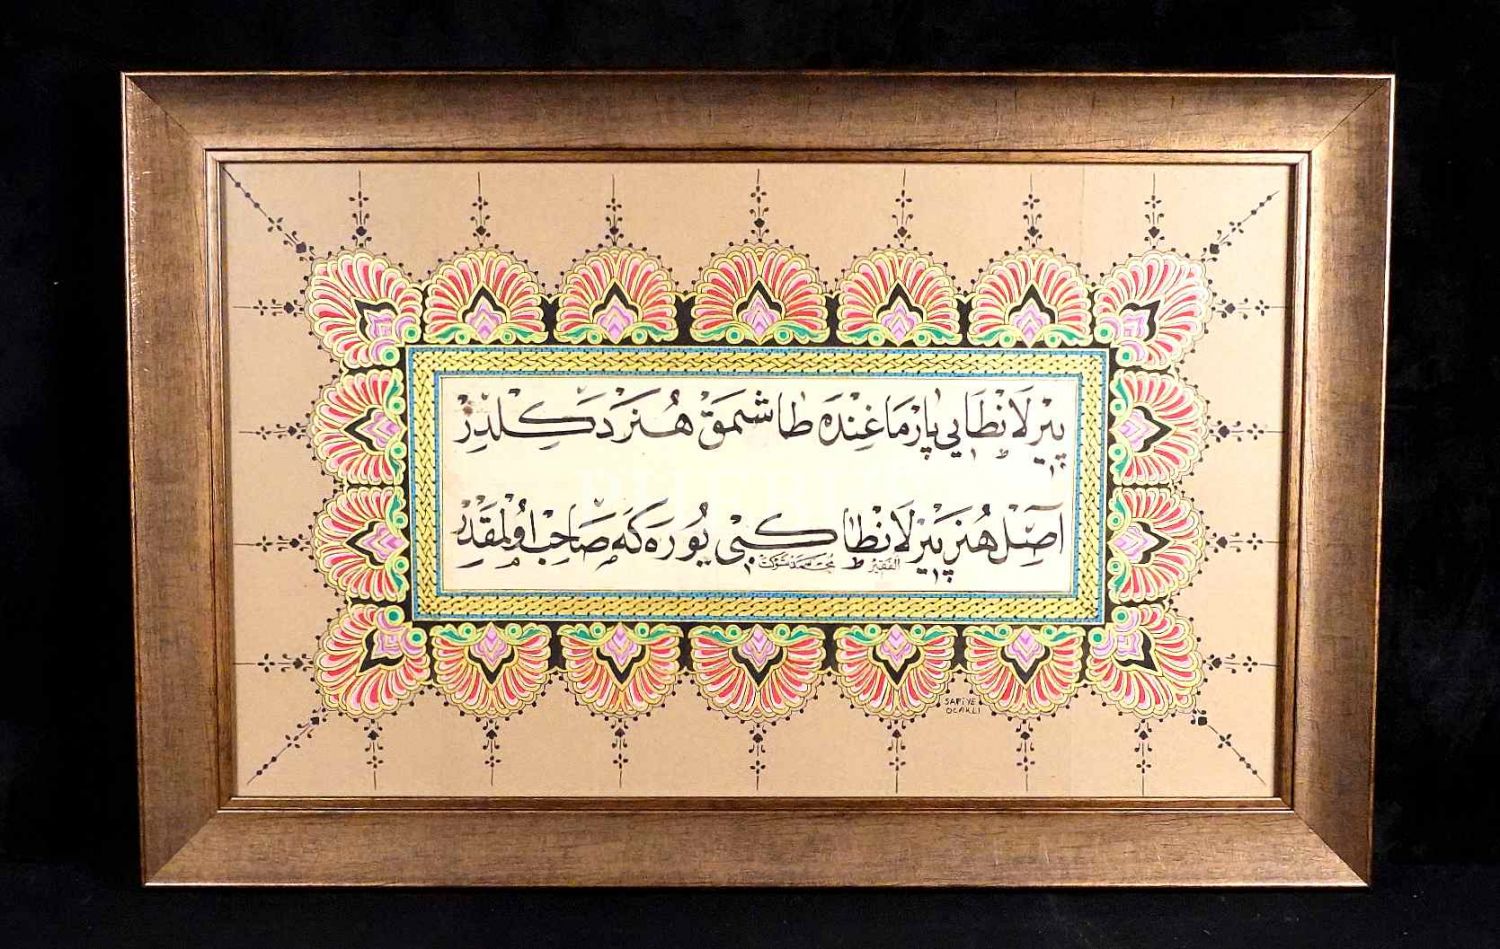 پيرلانطايى پارماغنده طاشمق هنر دكلدر
اصل هنر پيرلانطا كبى يوره كه صاحب اولمقدر
الفقير محمد شوكت
SAFİYE
OCAKLI